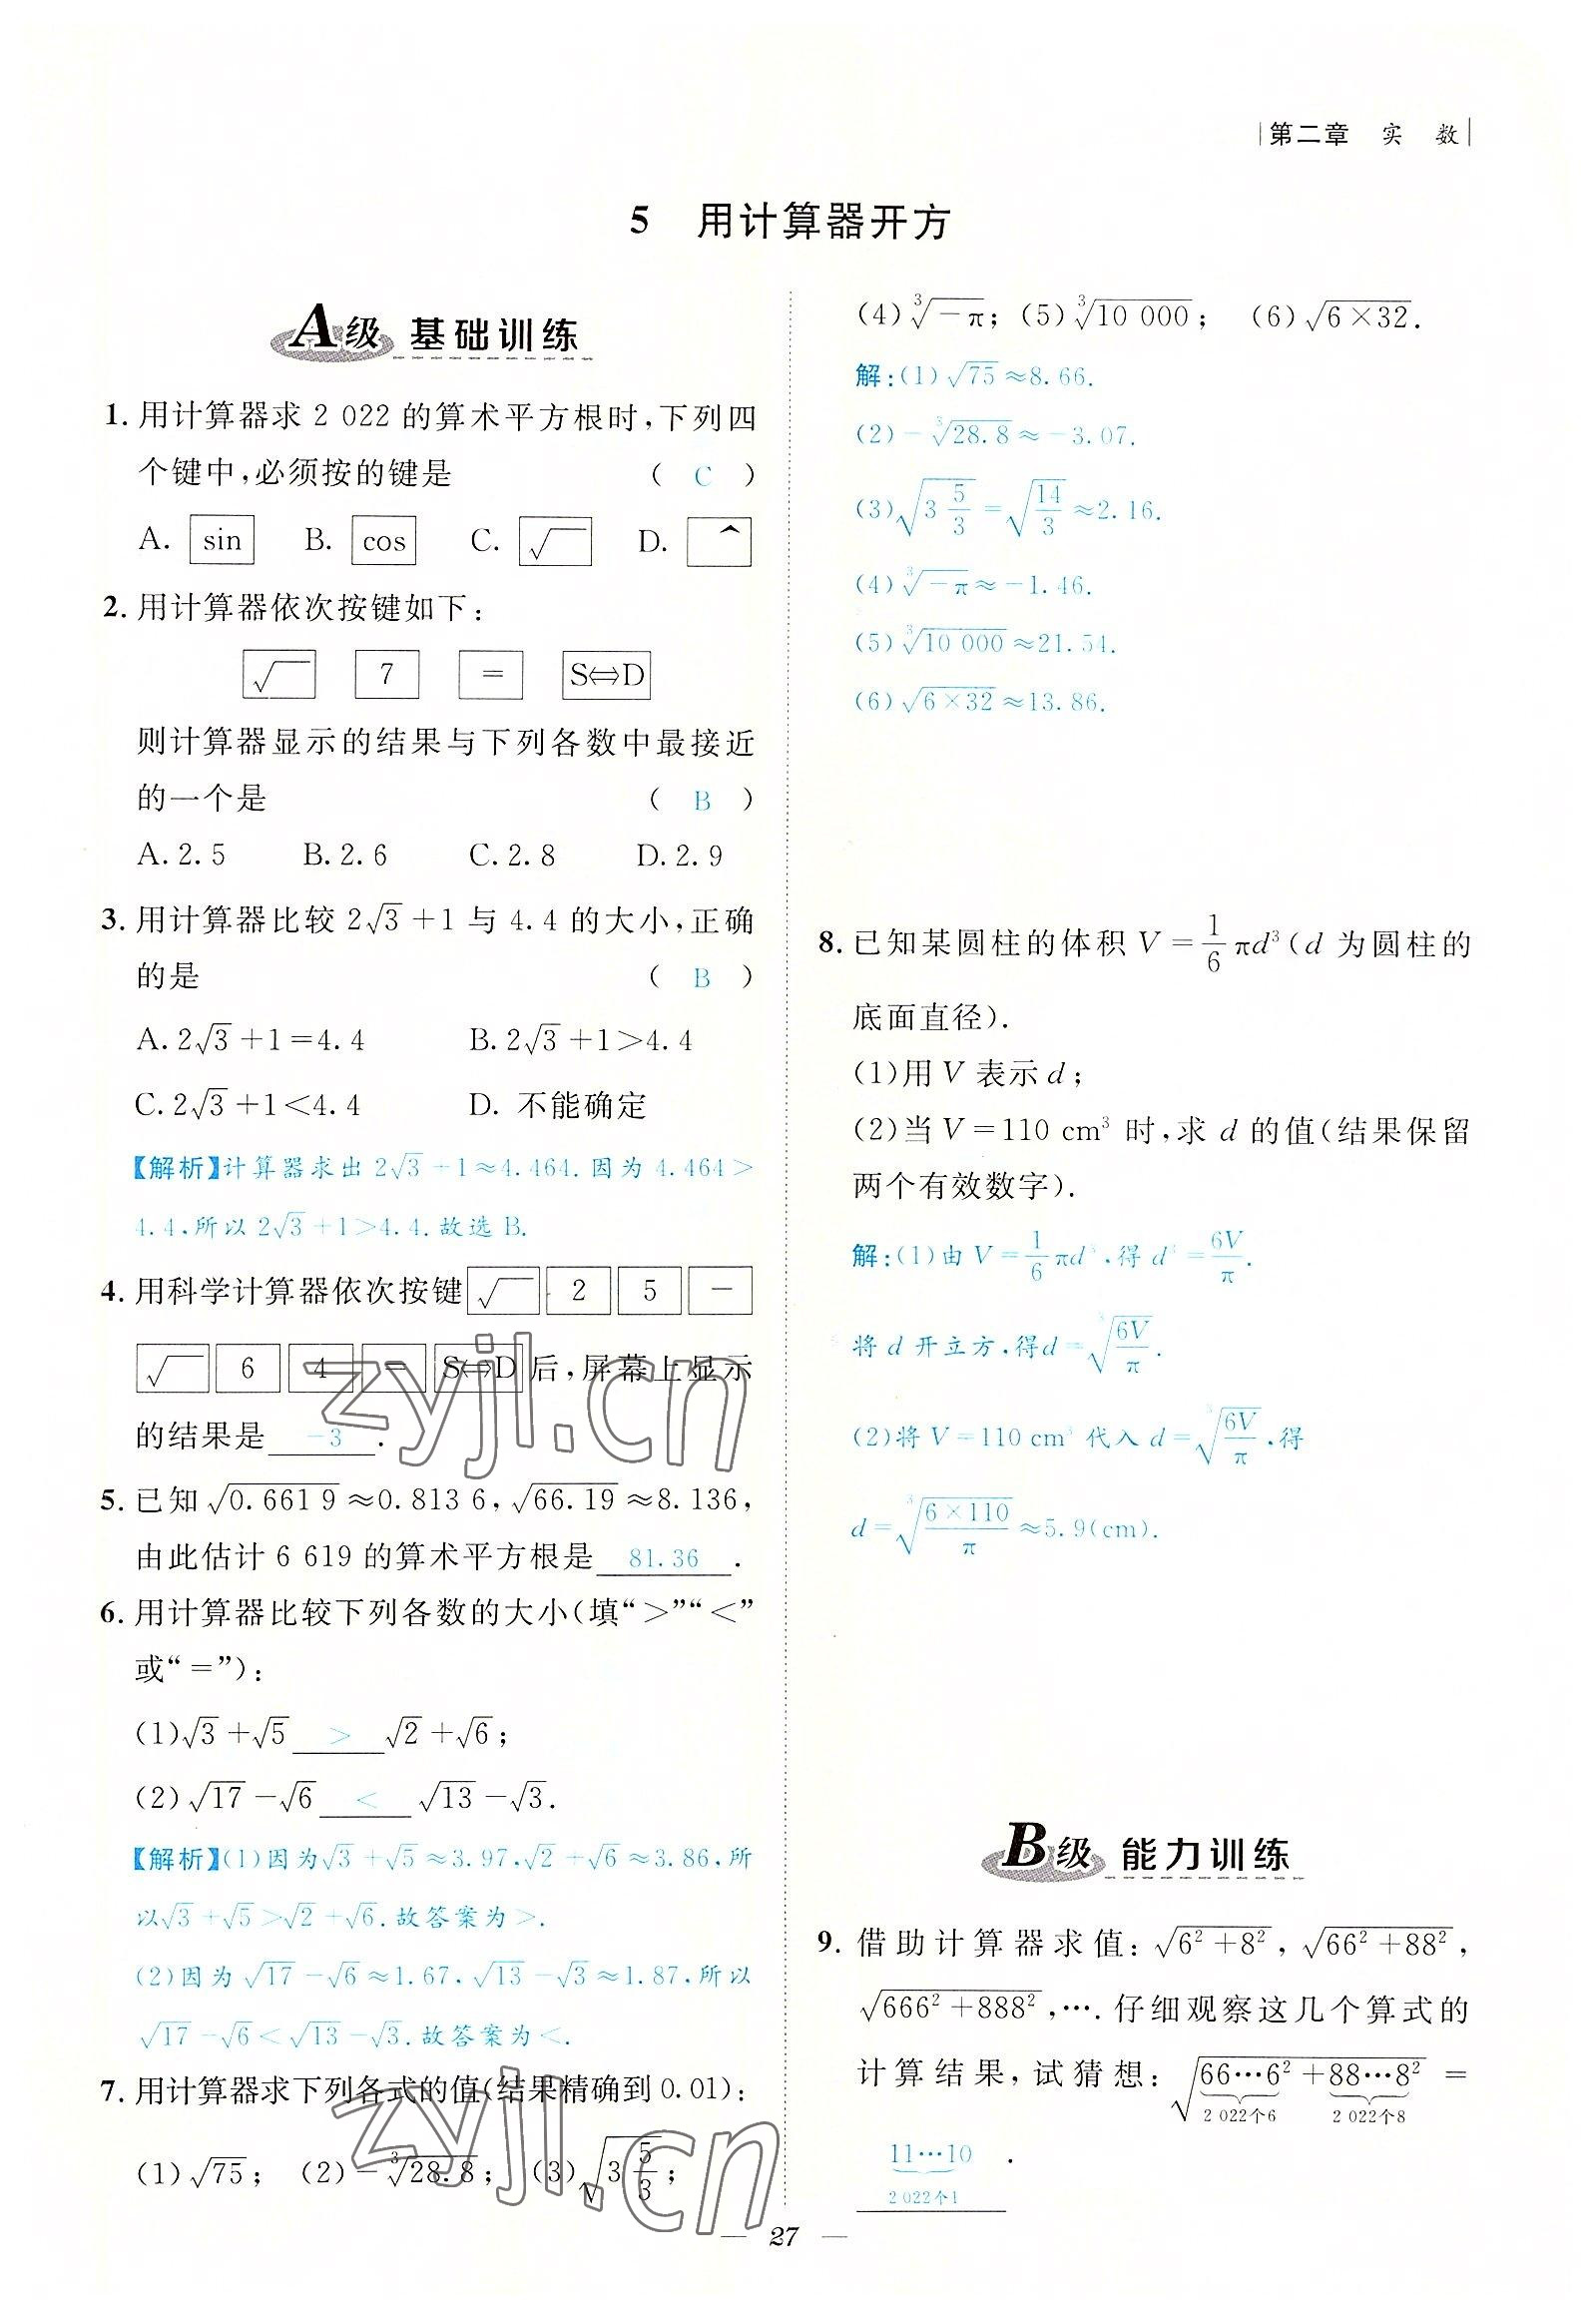 第二章 实 数
5 用计算器开方
A级 基础训练
1. 用计算器求 2 022 的算术平方根时,下列四
个键中,必须按的键是 ( C )
A. sin B. cos C. √ D. ^
2. 用计算器依次按键如下:
√ 7 = S⇔D
则计算器显示的结果与下列各数中最接近
的一个是 ( B )
A. 2.5 B. 2.6 C. 2.8 D. 2.9
3. 用计算器比较 2√3+1 与 4.4 的大小,正确
的是 ( B )
A. 2√3+1=4.4 B. 2√3+1>4.4
C. 2√3+1<4.4 D. 不能确定
【解析】计算器求出 2√3+1≈4.464. 因为 4.464>
4.4,所以 2√3+1>4.4. 故选 B.
4. 用科学计算器依次按键 √ 2 5 −
√ 6 4 = S⇔D 后,屏幕上显示
的结果是 −3 .
5. 已知 √(0.661 9)≈0.813 6,√(66.19)≈8.136,
由此估计 6 619 的算术平方根是 81.36 .
6. 用计算器比较下列各数的大小(填“>”“<”
或“=”):
(1)√3+√5 > √2+√6;
(2)√17−√6 < √13−√3.
【解析】(1)因为√3+√5≈3.97,√2+√6≈3.86,所
以√3+√5>√2+√6. 故答案为>.
(2)因为√17−√6≈1.67,√13−√3≈1.87,所以
√17−√6<√13−√3. 故答案为<.
7. 用计算器求下列各式的值(结果精确到 0.01):
(1)√75; (2)−∛28.8; (3)√(3 5/3);
(4)∛(−π); (5)∛(10 000); (6)√(6×32).
解:(1)√75≈8.66.
(2)−∛28.8≈−3.07.
(3)√(3 5/3)=√(14/3)≈2.16.
(4)∛(−π)≈−1.46.
(5)∛(10 000)≈21.54.
(6)√(6×32)≈13.86.
8. 已知某圆柱的体积 V=1/6 πd³(d 为圆柱的
底面直径).
(1)用 V 表示 d;
(2)当 V=110 cm³ 时,求 d 的值(结果保留
两个有效数字).
解:(1)由 V=1/6 πd³,得 d³=6V/π.
将 d 开立方,得d=∛(6V/π).
(2)将 V=110 cm³ 代入 d=∛(6V/π),得
d=∛(6×110/π)≈5.9(cm).
B级 能力训练
9. 借助计算器求值:√(6²+8²),√(66²+88²),
√(666²+888²),…. 仔细观察这几个算式的
计算结果,试猜想:√(66…6²+88…8²)=
2 022个6 2 022个8
11…10 .
2 022个1
27
zyjl.cn
zyjl.cn